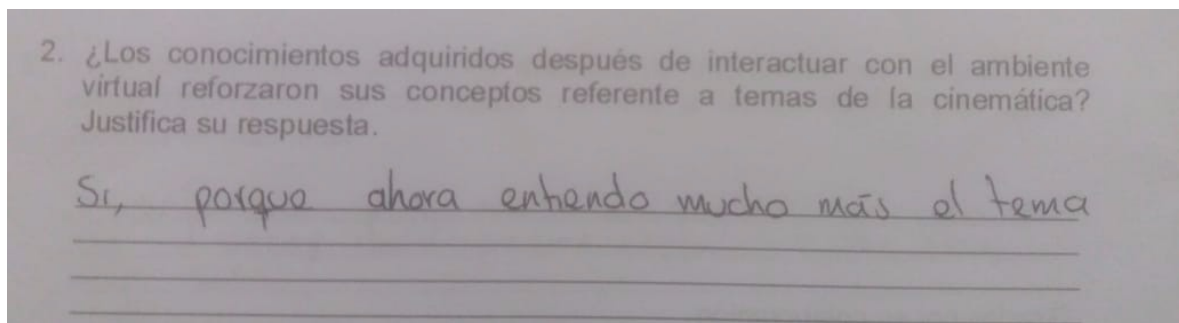 2. ¿Los conocimientos adquiridos después de interactuar con el ambiente
virtual reforzaron sus conceptos referente a temas de la cinemática?
Justifica su respuesta.
Si, porque ahora entiendo mucho más el tema